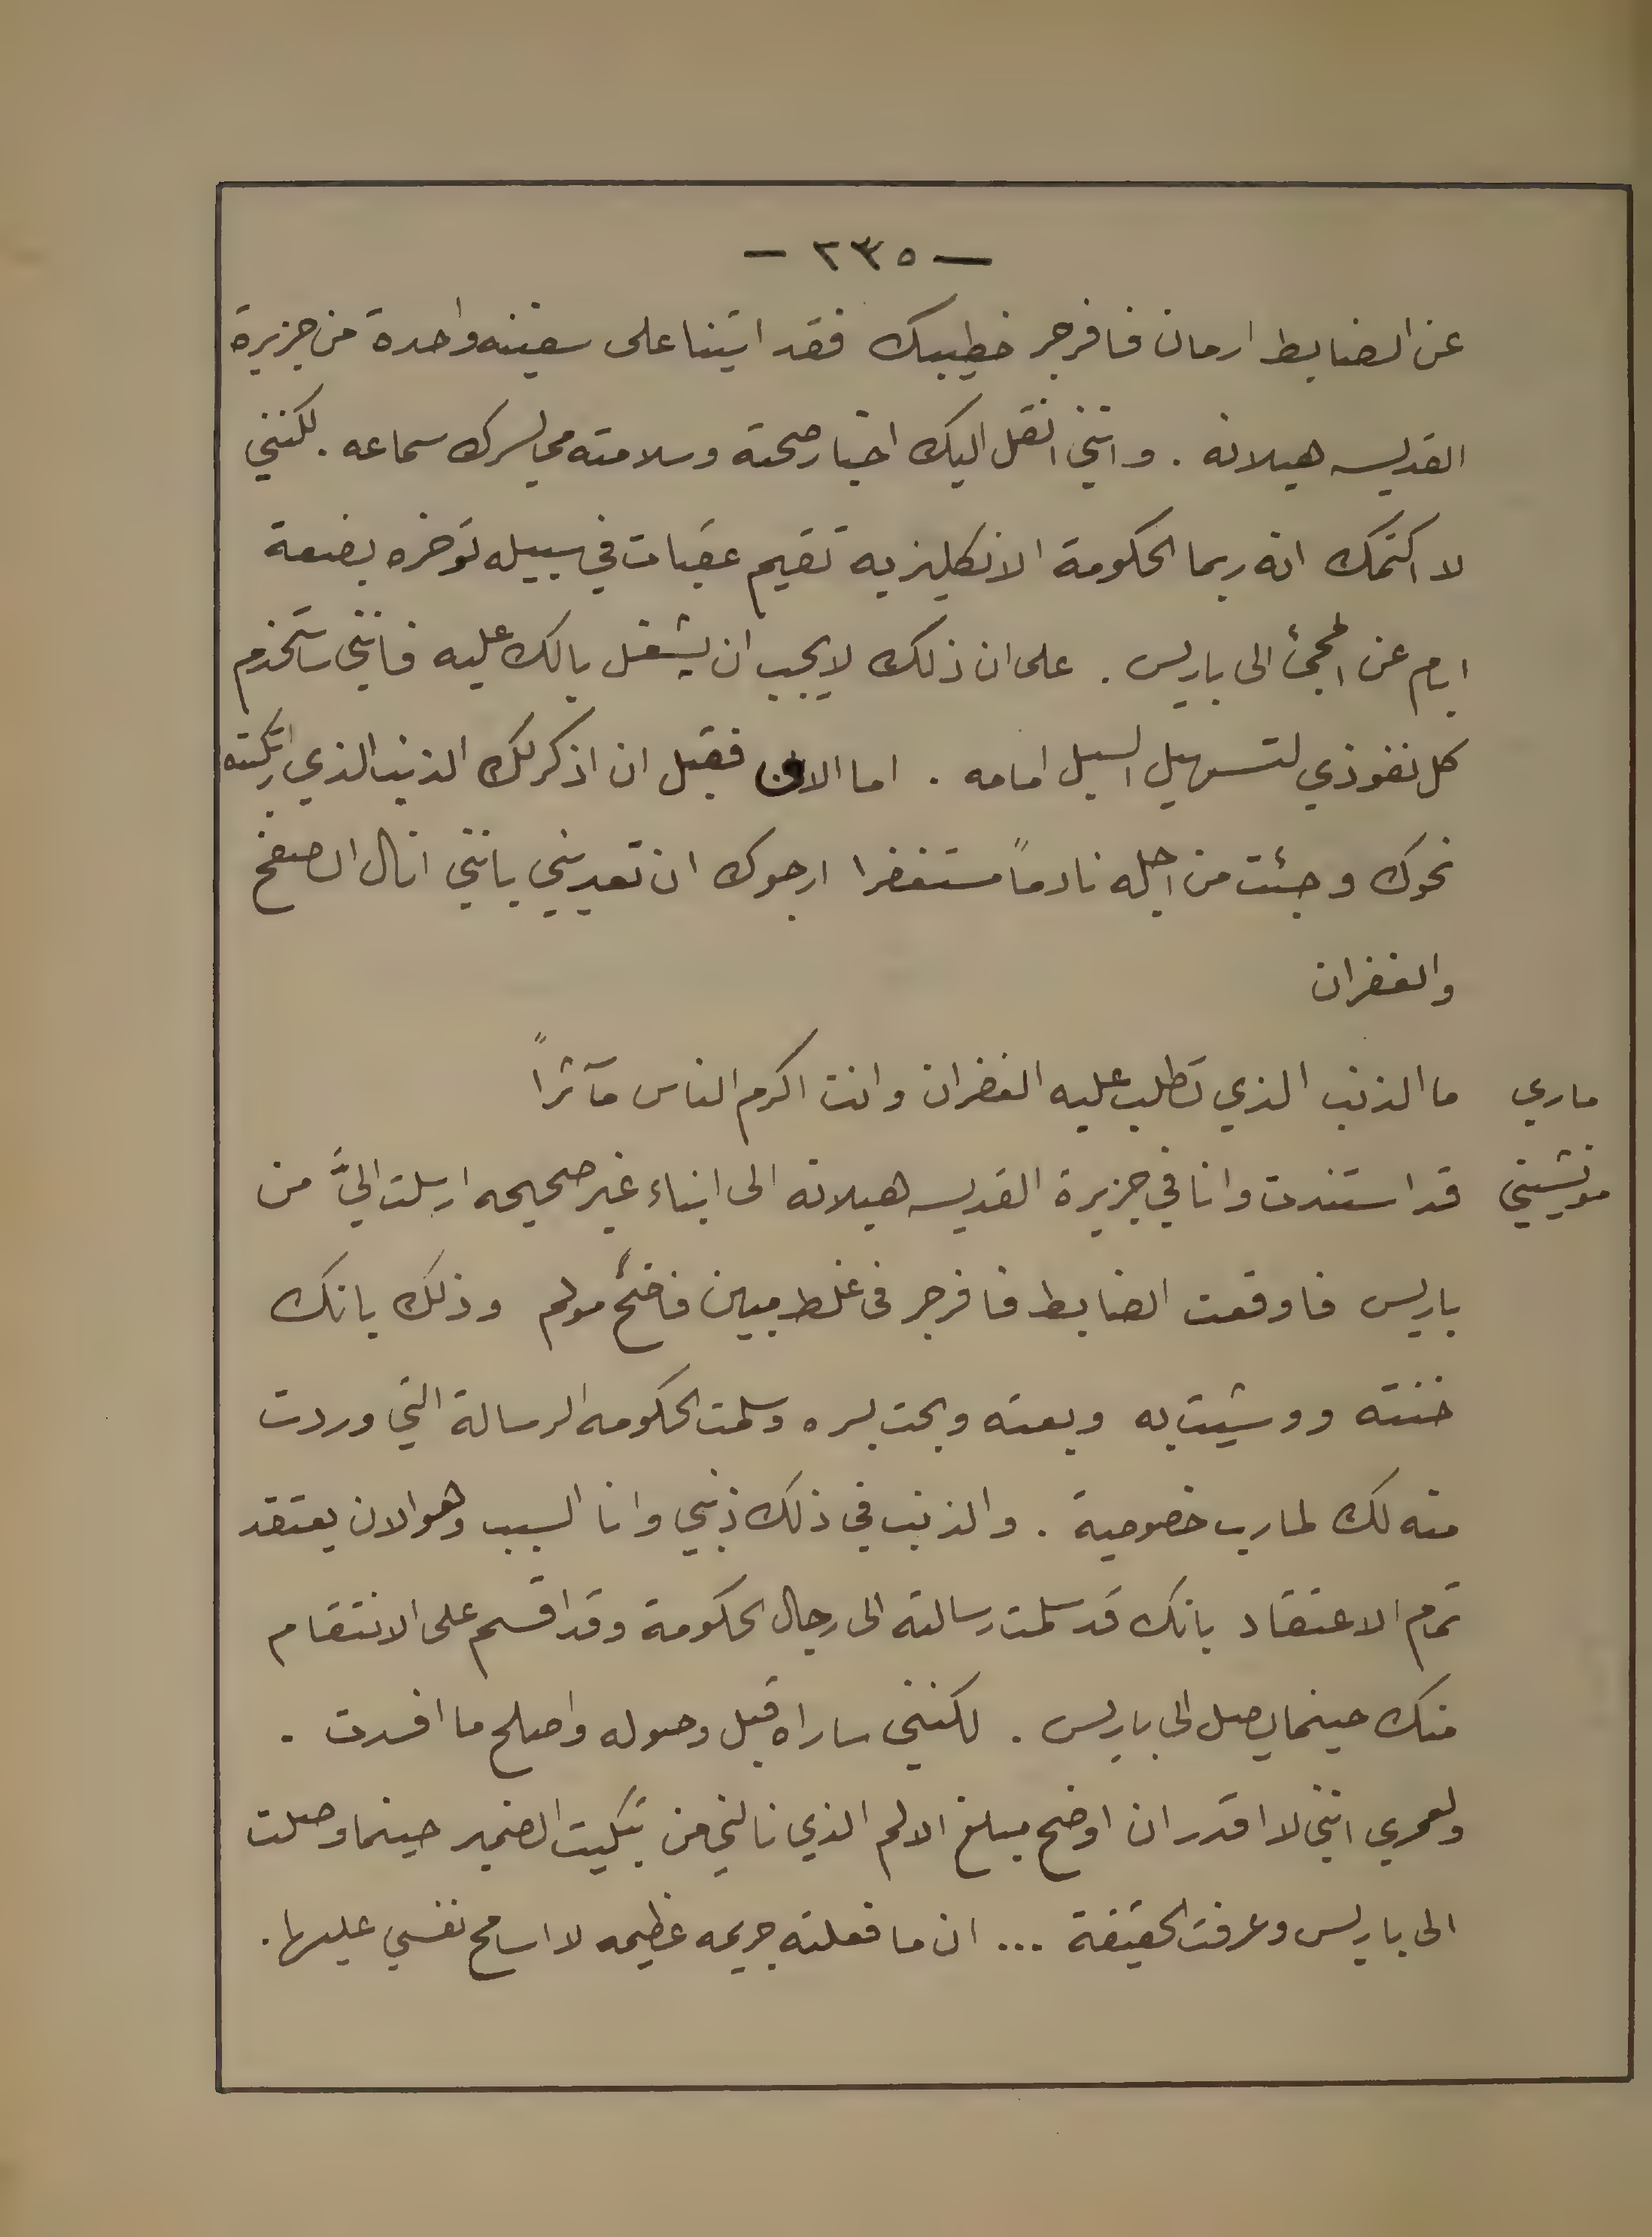 — ٢٣٥ —
عن الضابط ارمان فافرجر خطيبك فقد اتينا على سفينه واحدة من جزيرة
القديسه هيلانه . وانني انقل اليك اخبار صحته وسلامته مما يسرك سماعه . لكنني
لا اكتمك انه ربما الحكومة الانكليزيه تقيم عقبات في سبيله تؤخره بضعة
ايام عن المجئ الى باريس . على ان ذلك لا يجب ان يشغل بالك عليه فانني ساستخدم
كل نفوذي لتسهيل السبل امامه . اما الان فقبل ان اذكر لك الذنب الذي ارتكبته
نحوك وجئت من اجله نادماً مستغفرا ارجوك ان تعديني بانني انال الصفح
والغفران
ماري ما الذنب الذي تطلب عليه الغفران وانت اكرم الناس مآثراً
مونتشيني قد استندت وانا في جزيرة القديسه هيلانه الى انباء غير صحيحه ارسلت اليَّ من
باريس فاوقعت الضابط فافرجر في غلط مبين فاضح مولم وذلك بانك
خنته ووشيت به وبعته وبحت بسره وسلمت الحكومه الرسالة التي وردت
منه لك لمارب خصوصية . والذنب في ذلك ذنبي وانا السبب وهو الان يعتقد
تمام الاعتقاد بانك قد سلمت رسالته الى رجال الحكومة وقد اقسم على الانتقام
منك حينما يصل الى باريس . لكنني ساراه قبل وصوله واصلح ما افسدت .
ولعمري انني لا اقدر ان اوضح مبلغ الالم الذي نالني من تبكيت الضمير حينما وصلت
الى باريس وعرفت الحقيقة ... ان ما فعلته جريمه عظيمه لا اسامح نفسي عليها .